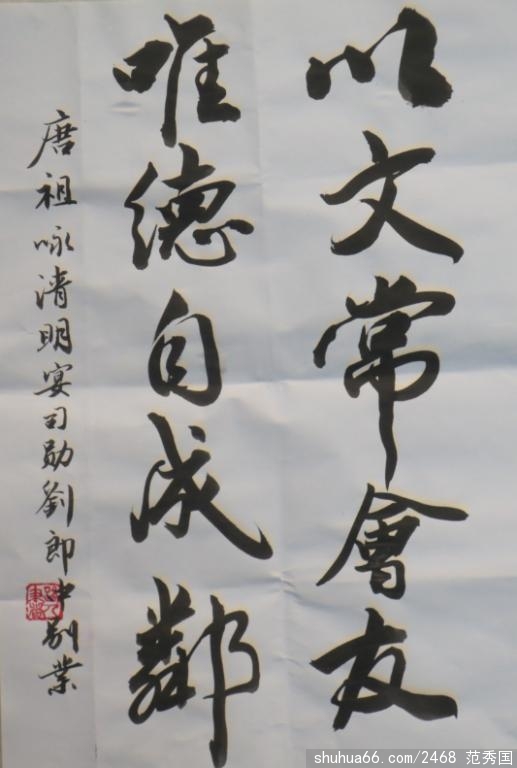 以文常會友
唯德自成鄰
唐祖咏清明宴司勋劉郎中别業
shuhua66.com/2468 范秀国